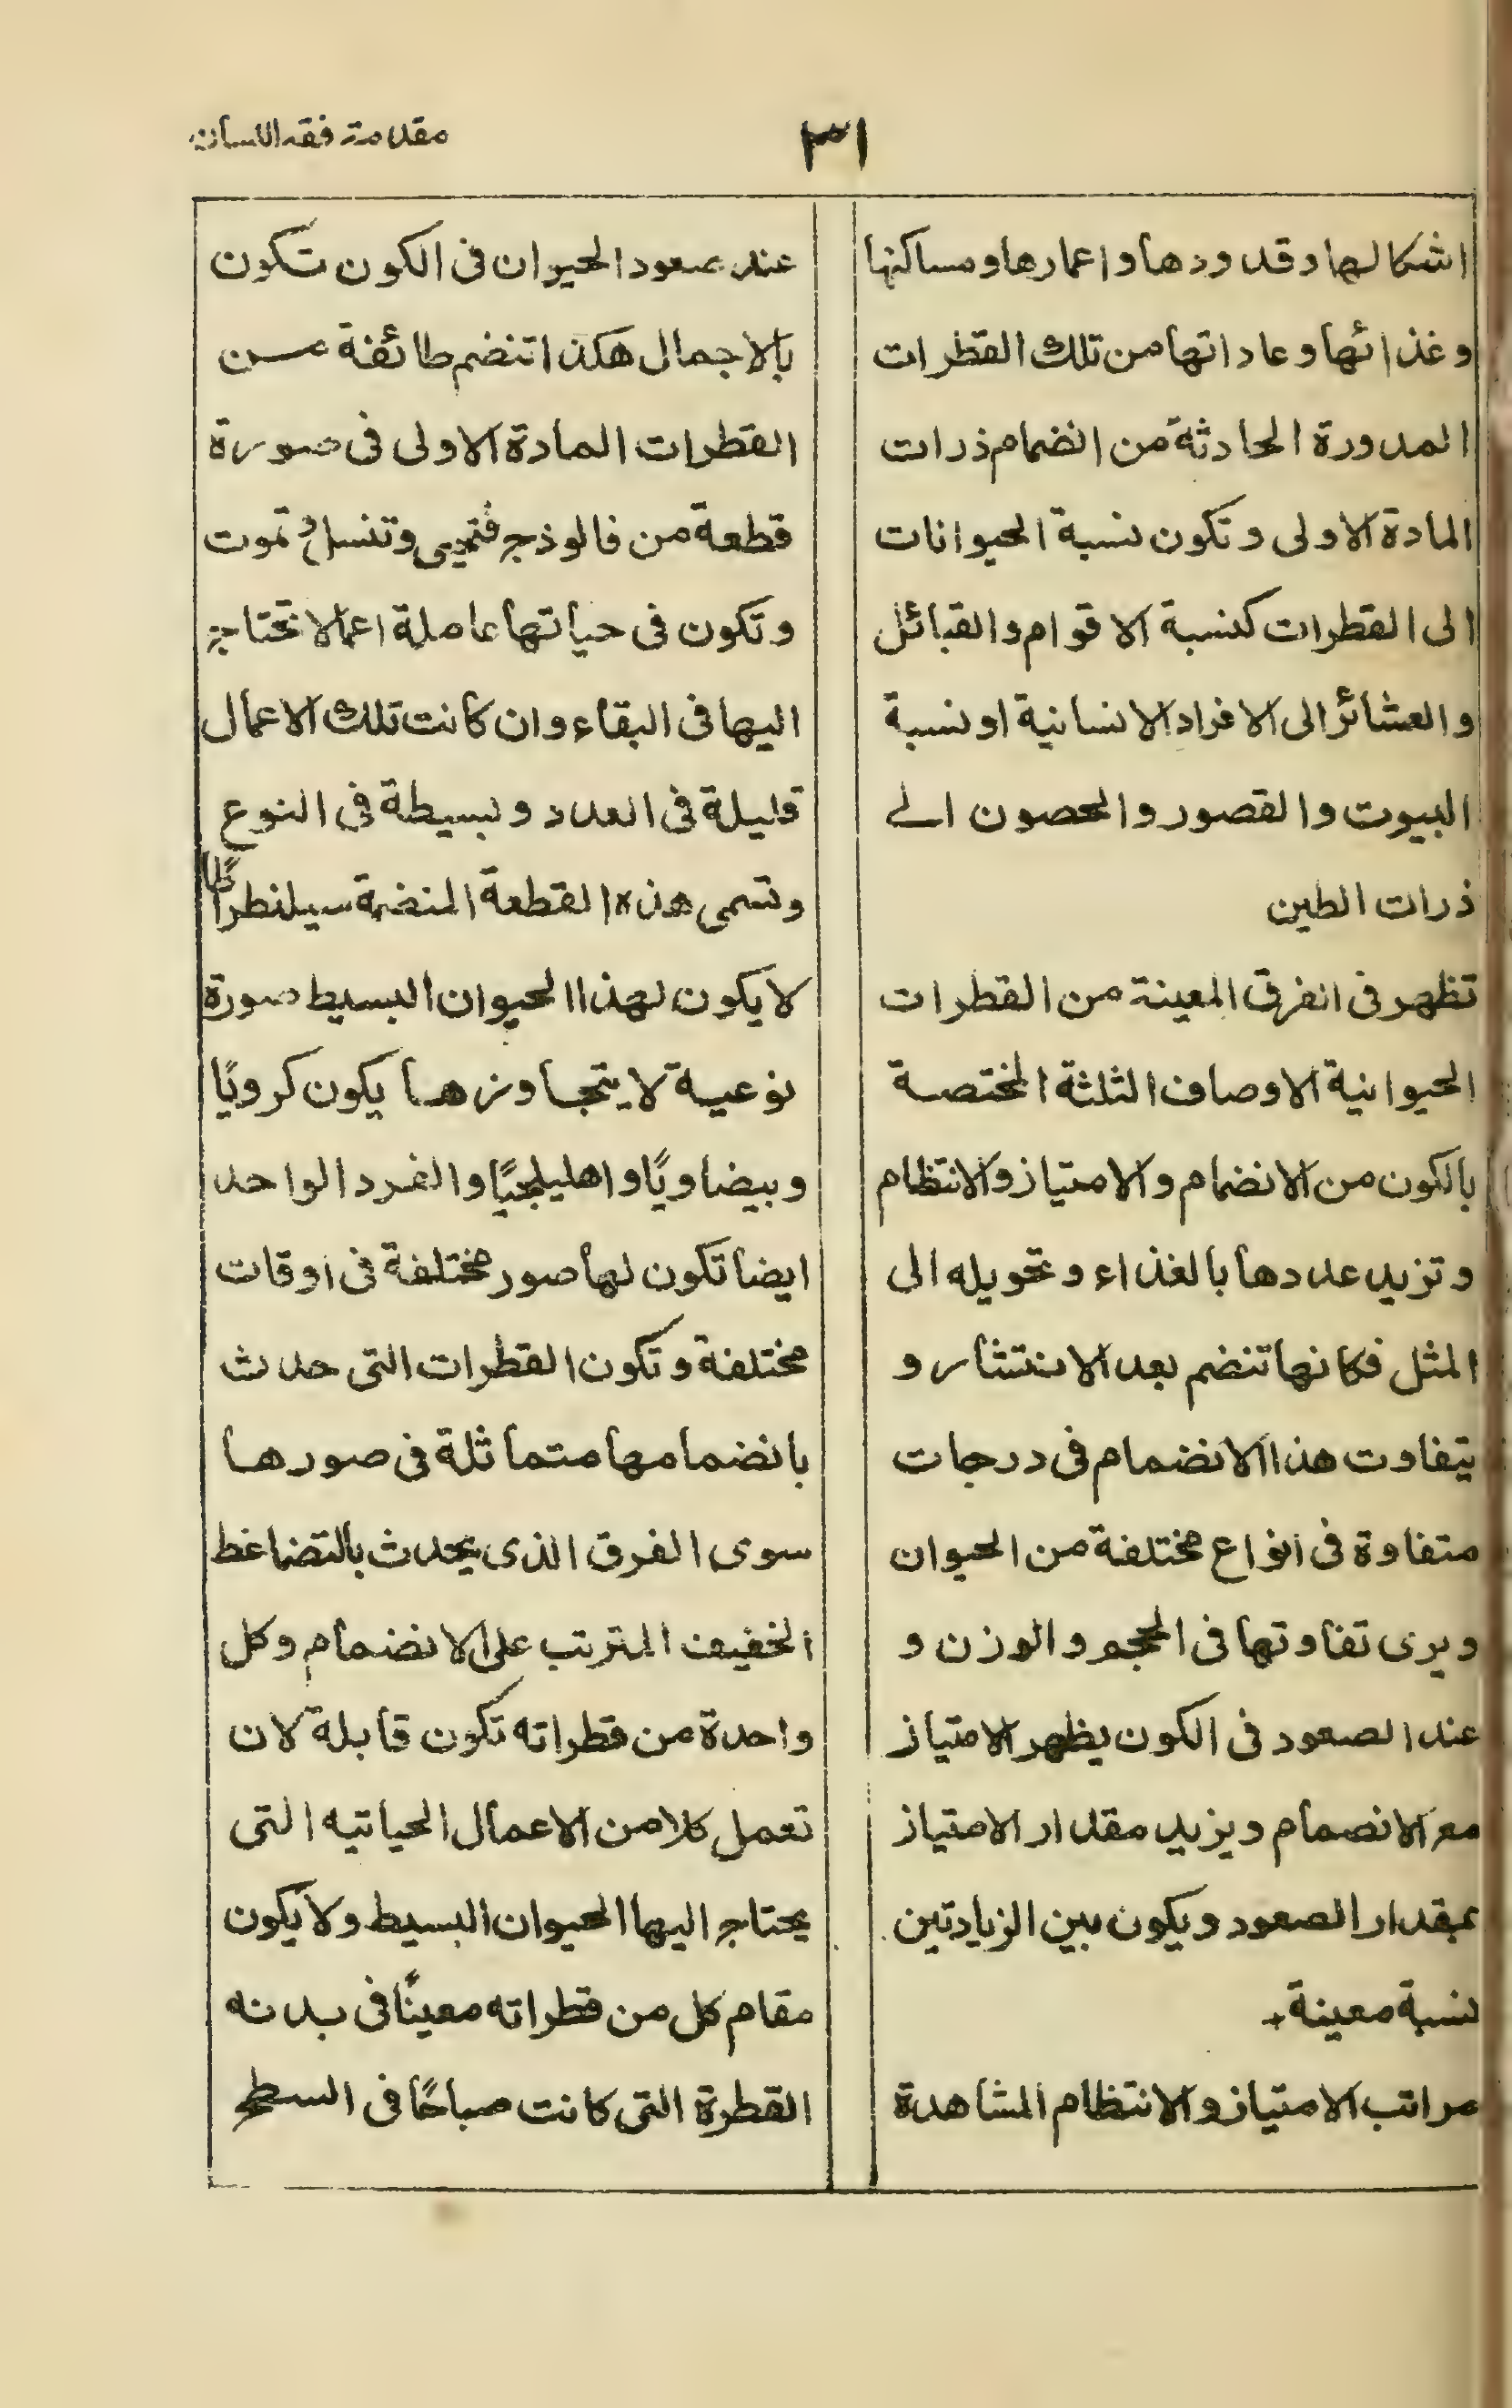 ٣١
مقدمة فقه اللسان
اشكالها وقدودها واعمارها ومساكنها
وغذائها وعاداتها من تلك القطرات
المدورة الحادثة من انضمام ذرات
المادة الاولى وتكون نسبة الحيوانات
الى القطرات كنسبة الاقوام والقبائل
والعشائر الى الافراد الانسانية او نسبة
البيوت والقصور والحصون الى
ذرات الطين
تظهر فى الفرق المعينة من القطرات
الحيوانية الاوصاف الثلثة المختصة
بالكون من الانضمام والامتياز والانتظام
وتزيد عددها بالغذاء وتحويله الى
المثل فكانها تنضم بعد الانتشار و
يتفاوت هذا الانضمام فى درجات
متفاوة فى انواع مختلفة من الحيوان
ويرى تفاوتها فى الحجم والوزن و
عند الصعود فى الكون يظهر الامتياز
مع الانضمام ويزيد مقدار الامتياز
بمقدار الصعود ويكون بين الزيادتين
نسبة معينة
مراتب الامتياز والانتظام المشاهدة
عند صعود الحيوان فى الكون تكون
بالاجمال هكذا تنضم طائفة من
القطرات المادة الاولى فى صورة
قطعة من فالوذج فتحيى وتنسل وتموت
وتكون فى حياتها عاملة اعمالا تحتاج
اليها فى البقاء وان كانت تلك الاعمال
قليلة فى العدد وبسيطة فى النوع
وتسمى هذه القطعة المنضمة سيلنطراطًا
لا يكون لهذا الحيوان البسيط صورة
نوعية لا يتجاوزها يكون كرويًا
وبيضاويًا واهليلجيًا والفرد الواحد
ايضا تكون لها صور مختلفة فى اوقات
مختلفة وتكون القطرات التى حدث
بانضمامها متماثلة فى صورها
سوى الفرق الذى يحدث بالتضاغط
الخفيف المترتب على الانضمام وكل
واحدة من قطراته تكون قابلة لان
تعمل كلا من الاعمال الحياتيه التى
يحتاج اليها الحيوان البسيط ولا يكون
مقام كل من قطراته معينًا فى بدنه
القطرة التى كانت صباحًا فى السطح